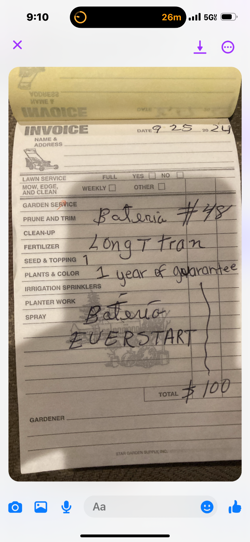 9:10
26m
5G
INVOICE
INVOICE
DATE 9 25 20 24
NAME &
ADDRESS
LAWN SERVICE FULL YES NO
MOW, EDGE,
AND CLEAN WEEKLY OTHER
GARDEN SERVICE
PRUNE AND TRIM Bateria #48
CLEAN-UP
FERTILIZER Long T Tran
SEED & TOPPING 1
PLANTS & COLOR 1 year of guarantee
IRRIGATION SPRINKLERS
PLANTER WORK
SPRAY Bateria
EVERSTART
TOTAL $100
GARDENER
Aa